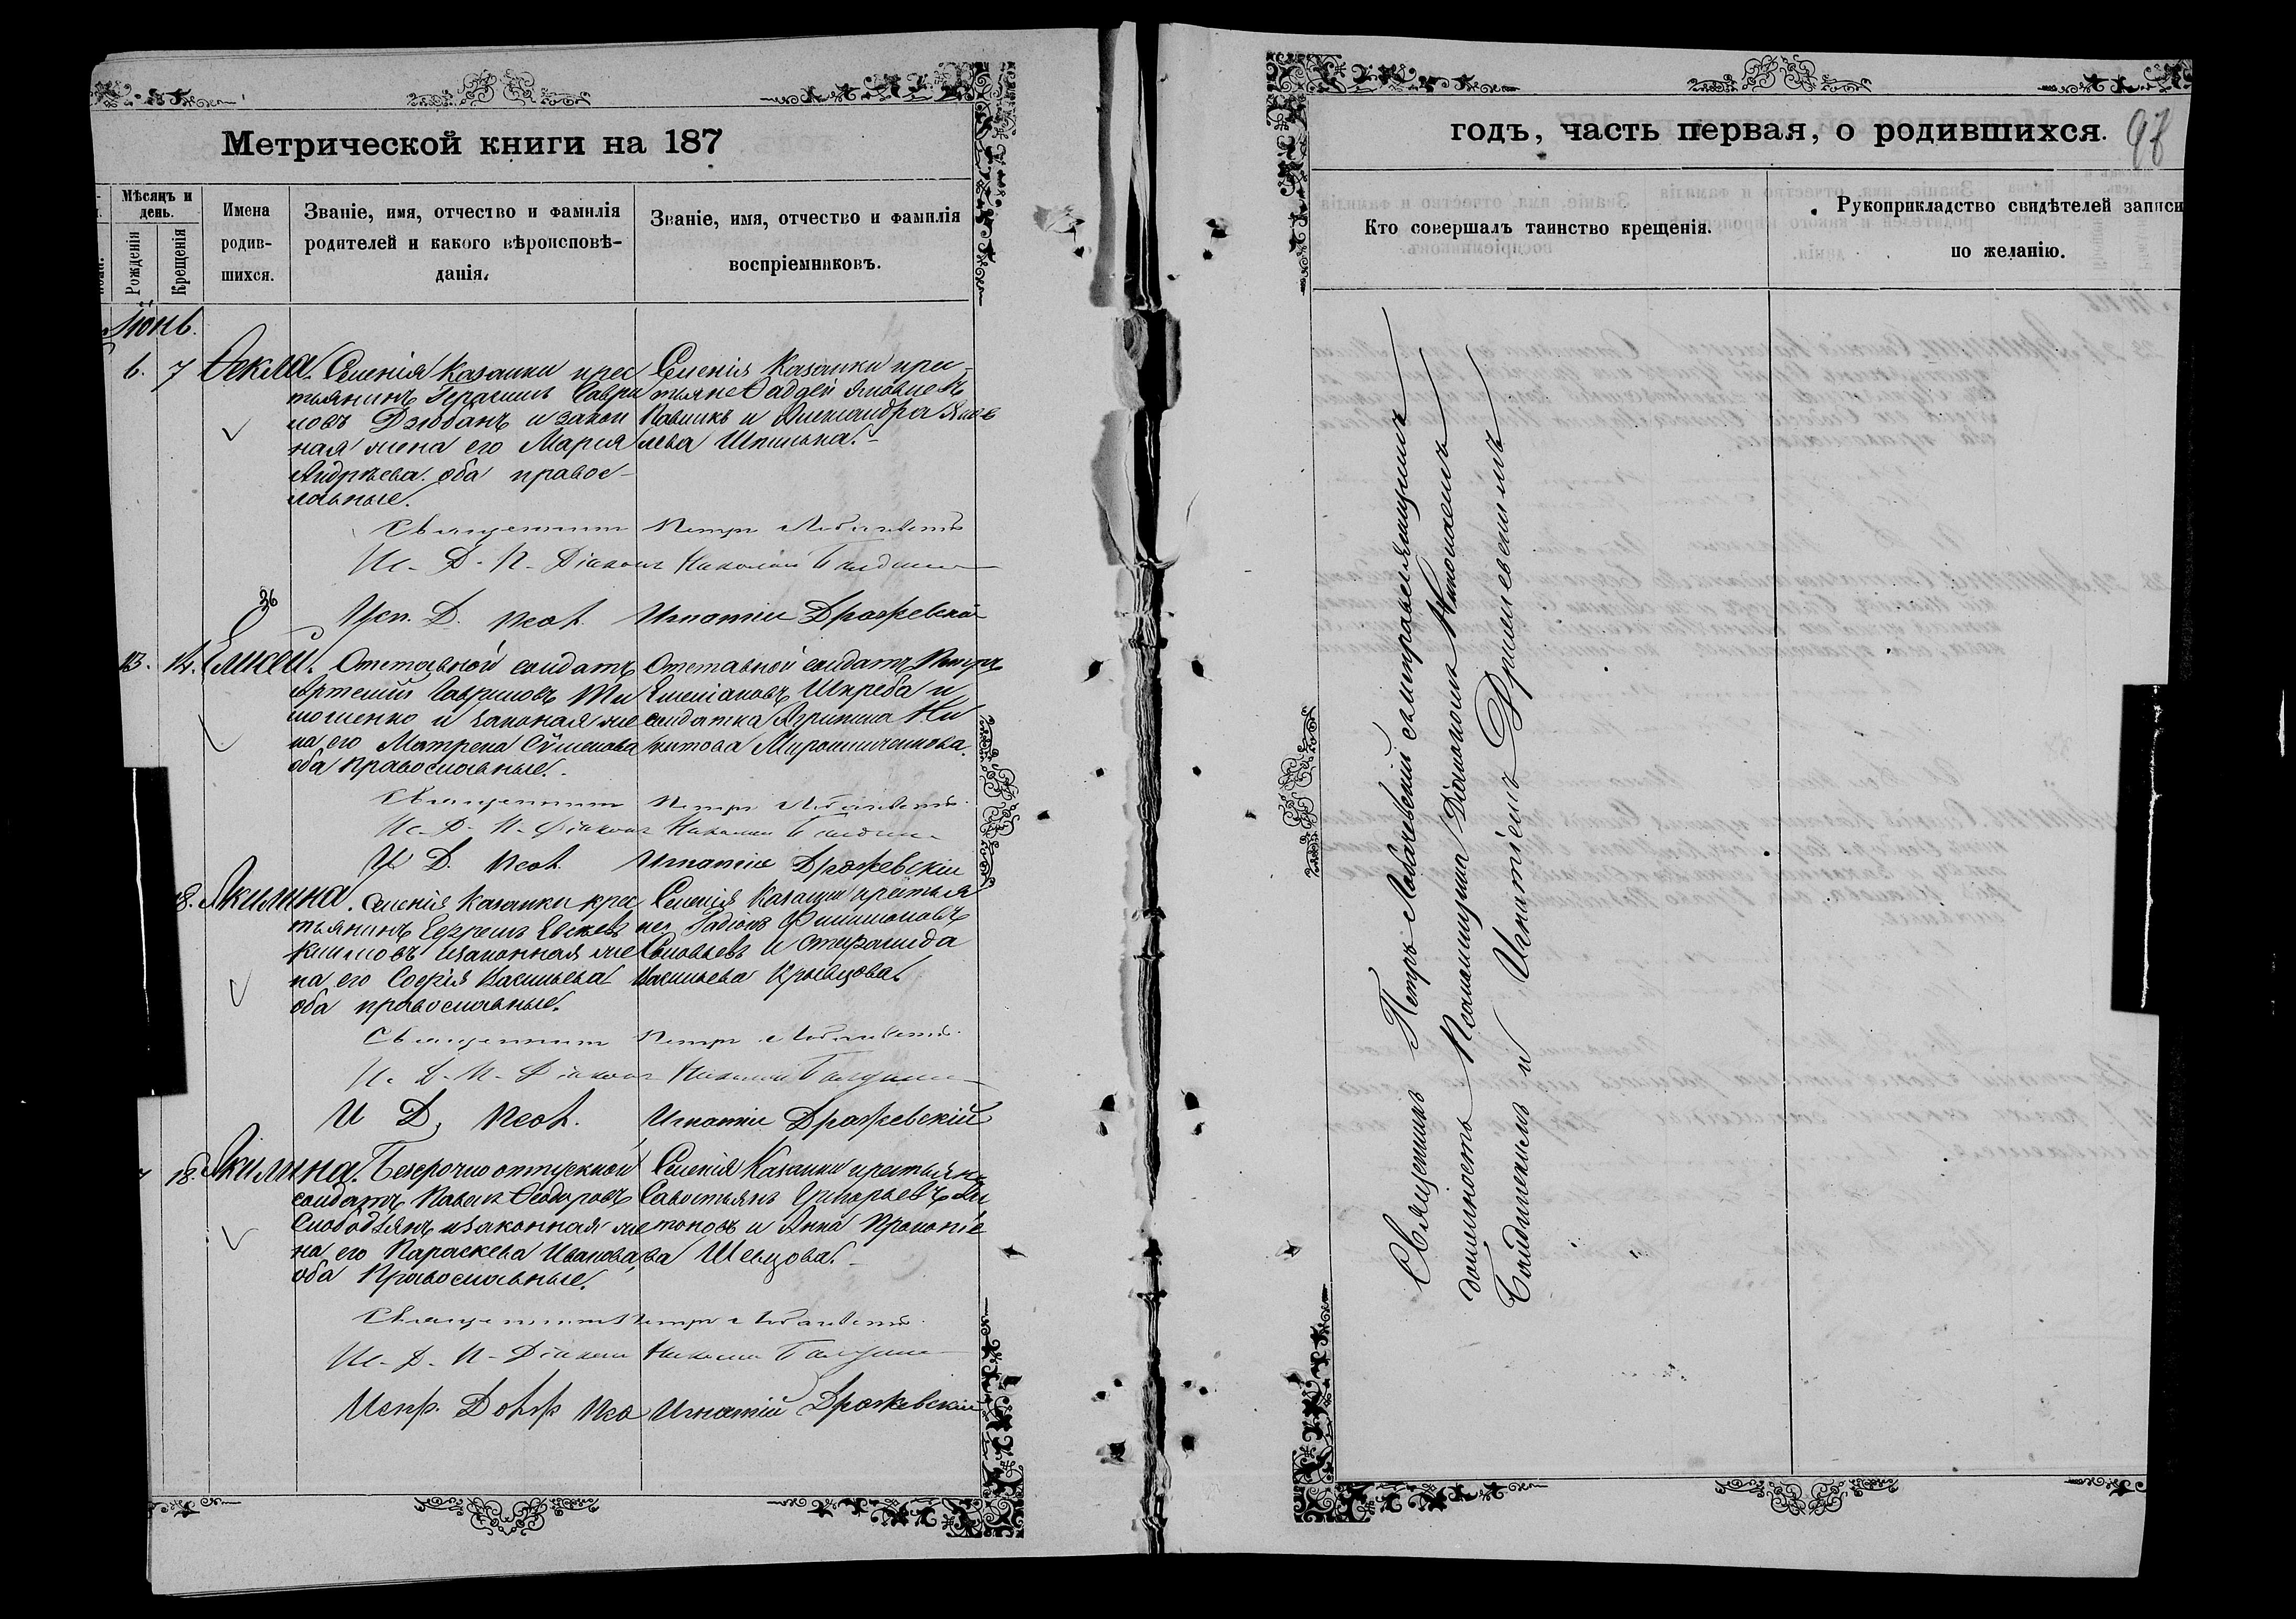 Метрической книги на 187
Мѣсяцъ и день.
Рожденія
Крещенія
Имена родив-
шихся.
Званіе, имя, отчество и фамилія
родителей и какого вѣроисповѣ-
данія.
Званіе, имя, отчество и фамилія
воспріемниковъ.
Іюнь.
6. 7 Ѳекла. Селенія Казанки крес
тьянинъ Герасимъ Гаври
ловъ Дзюбанъ и закон
ная жена его Марія
Андрѣева. оба правос-
лавные.
Селенія Казанки крес-
тьяне Ѳаддей
и Александра
Шпилька.
Священникъ Петръ Лобачевскій
И. Д. П. Діаконъ Николай
Исп. Д. Псал. Игнатій Држевскій
26
13. 14. Елисей. Отставной солдатъ
Артемій Гавриловъ Ти
мошенко и законая же
на его Матрена Сѵмеонова
оба православные.
Отставной солдатъ Петръ
Емеліановъ Шкреба и
солдатка Агрипина Ни
китова Мирошниченкова.
Священникъ Петръ Лобачевскій
И. Д. П. Діаконъ Николай
И Д. Псал. Игнатій Држевскій
18. Акилина. Селенія Казанки крес
тьянинъ Ефремъ Евсеевъ
и законная же
на его Софія Васильева
оба православные.
Селенія Казанки крестья
не Родіонъ Филимоновъ
Соловьевъ и Стефанида
Васильева Кравцова.
Священникъ Петръ Лобачевскій
И. Д. П. Діаконъ Николай
И Д. Псал. Игнатій Држевскій
18. Акилина. Безсрочно отпускной
солдатъ Павелъ Ѳеодоровъ
Слободянъ и законная же
на его Параскева Иванова,
оба Православные.
Селенія Казанки крестьяне
Савостьянъ Григорьевъ Ан
тоновъ и Анна Прокопіе
ва Шевцова.
Священникъ Петръ Лобачевскій
И. Д. П. Діаконъ Николай
Испр. Долж Пса Игнатій Држевскій
годъ, часть первая, о родившихся.
98
Кто совершалъ таинство крещенія.
Рукоприкладство свидѣтелей записи
по желанію.
Священникъ Петръ Лобачевскій съ исправляющимъ
должность Псаломщика Діакономъ Николаемъ
и Игнатіемъ